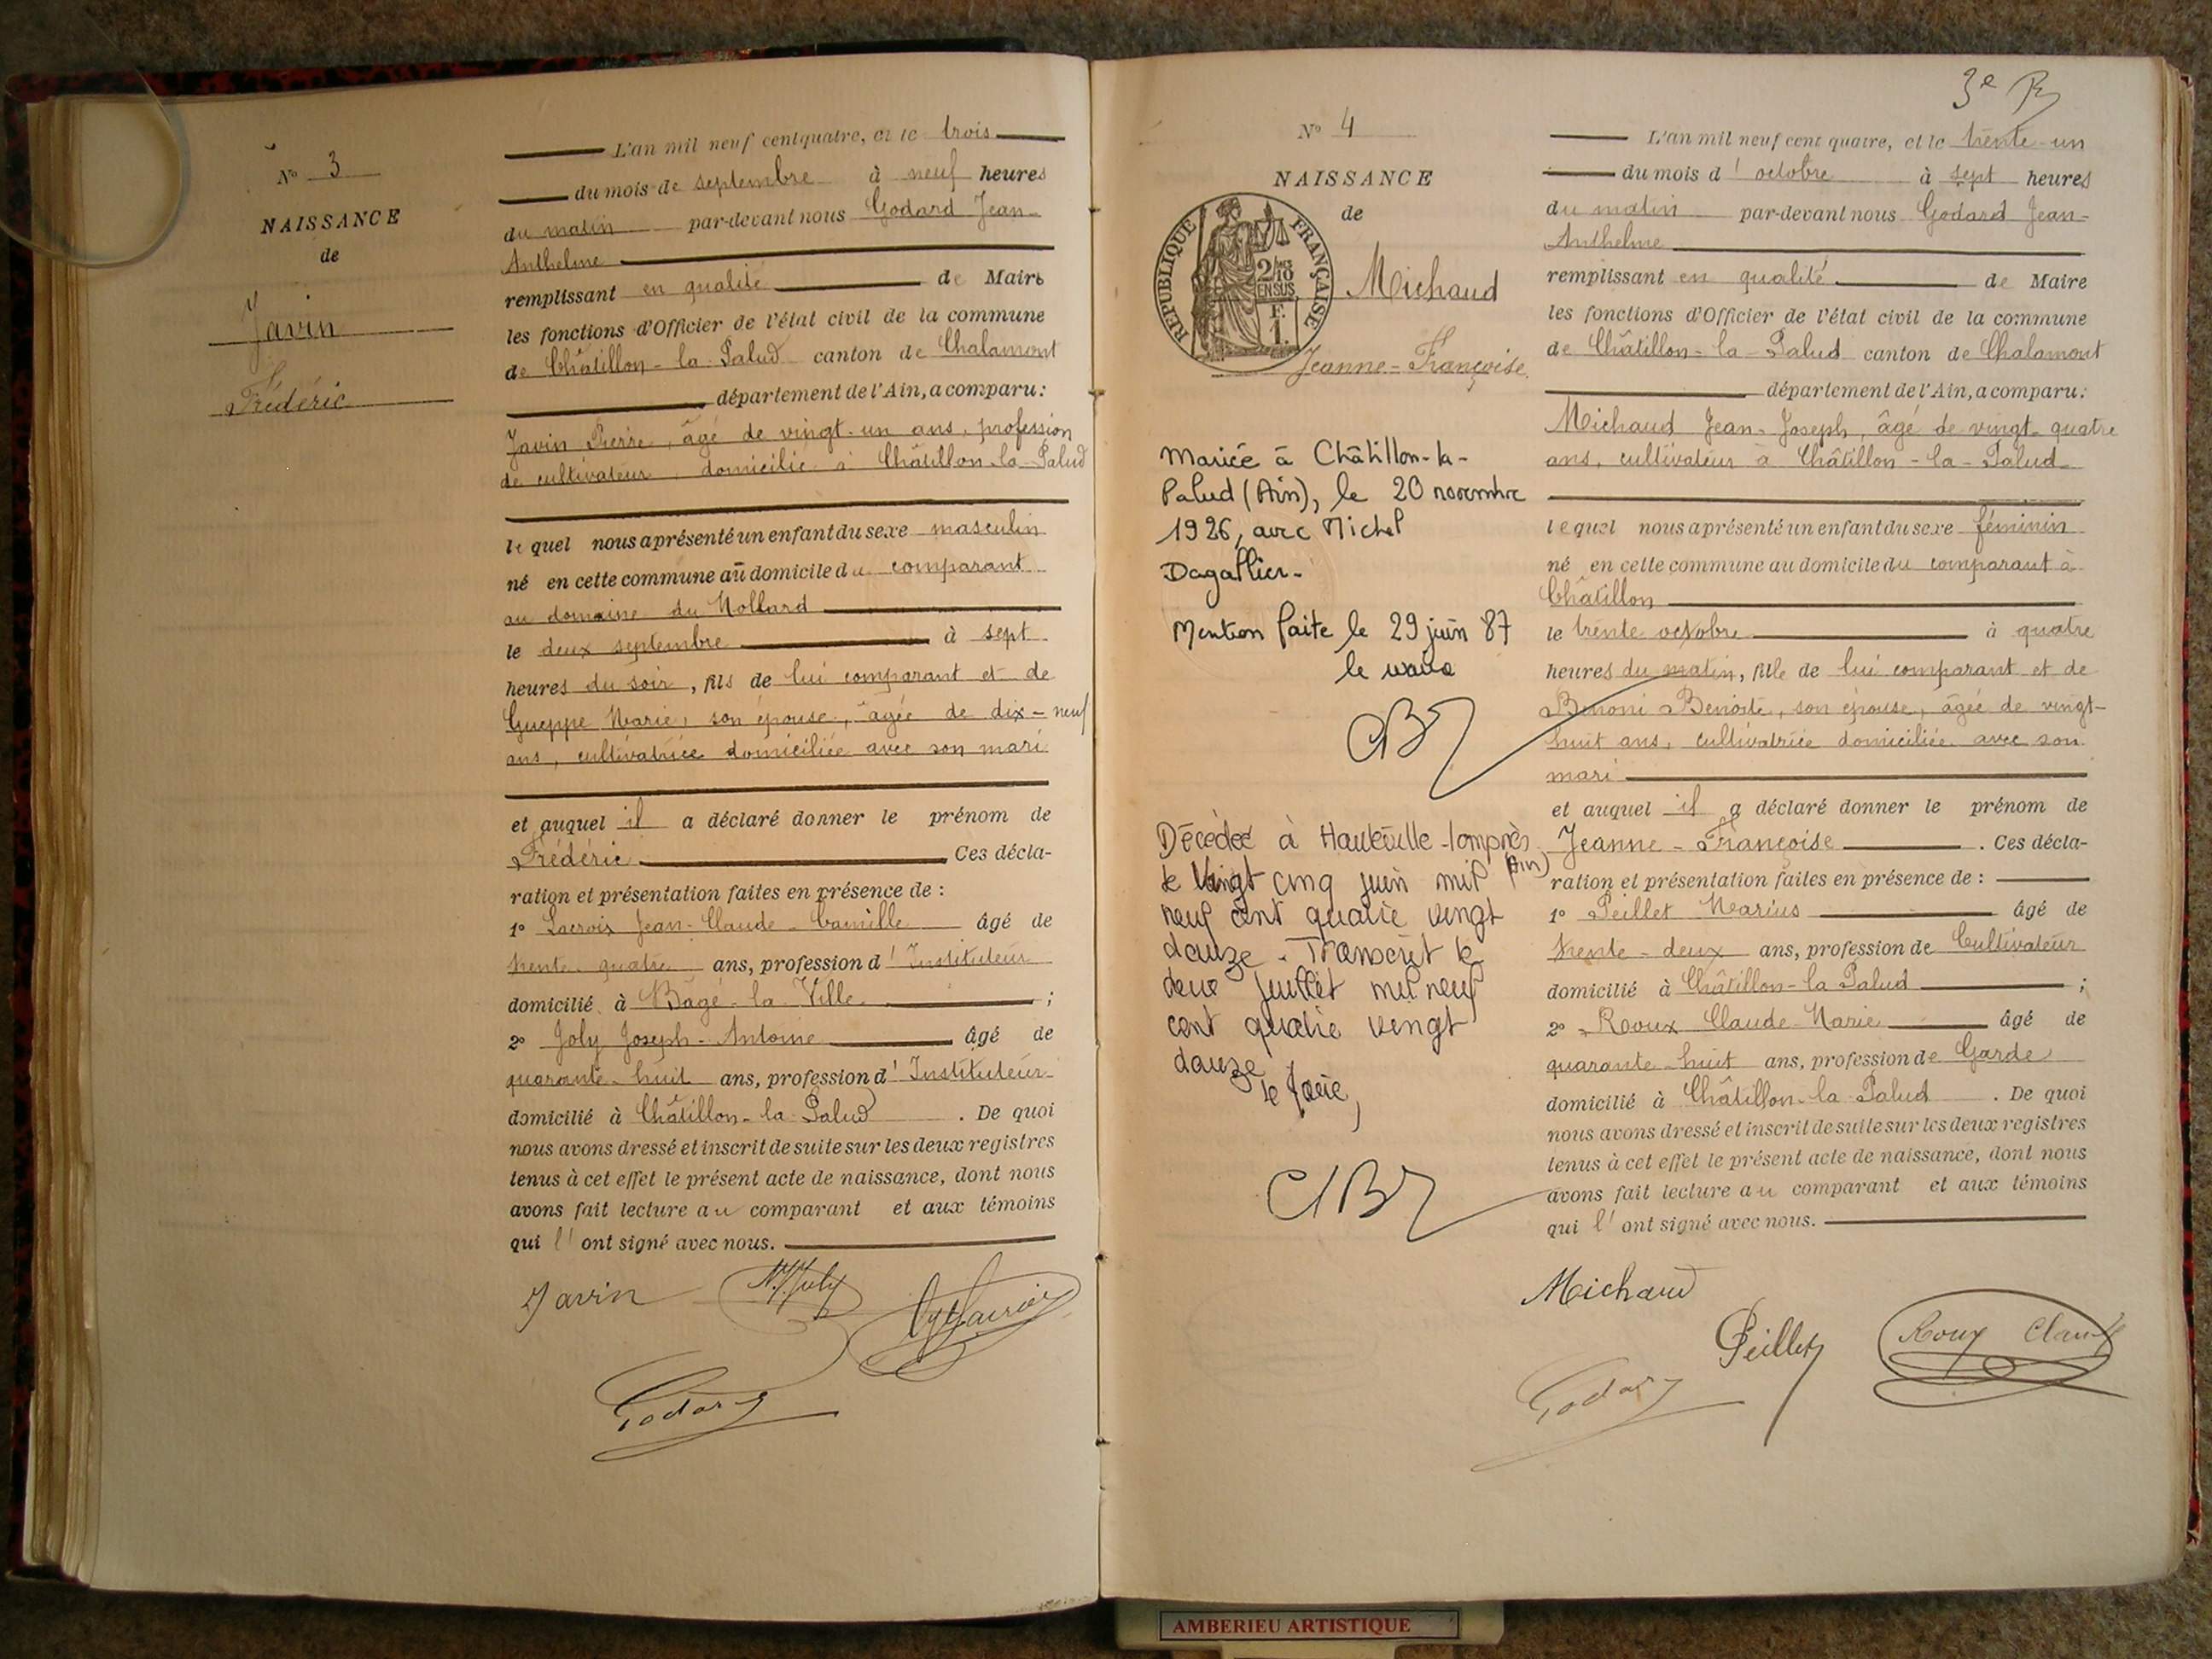 N° 3
NAISSANCE
de
Javin
Frédéric
L'an mil neuf cent quatre, et le trois
du mois de septembre à neuf heures
du matin par-devant nous Godard Jean-
Anthelme
remplissant en qualité de Maire
les fonctions d'Officier de l'état civil de la commune
de Châtillon-la-Palud canton de Chalamont
département de l'Ain, a comparu:
Javin Pierre, âgé de vingt-un ans, profession
de cultivateur, domicilié à Châtillon-la-Palud
lequel nous a présenté un enfant du sexe masculin
né en cette commune au domicile du comparant
au domaine du Mollard
le deux septembre à sept
heures du soir, fils de lui comparant et de
Gueppe Marie, son épouse, âgée de dix-neuf
ans, cultivatrice domiciliée avec son mari
et auquel il a déclaré donner le prénom de
Frédéric Ces décla-
ration et présentation faites en présence de :
1° Lacroix Jean-Claude-Camille âgé de
trente-quatre ans, profession d'Instituteur
domicilié à Bâgé-la-Ville ;
2° Joly Joseph-Antoine âgé de
quarante-huit ans, profession d'Instituteur
domicilié à Châtillon-la-Palud . De quoi
nous avons dressé et inscrit de suite sur les deux registres
tenus à cet effet le présent acte de naissance, dont nous
avons fait lecture au comparant et aux témoins
qui l'ont signé avec nous.
Javin Joly Lacroix
Godard
3e R
N° 4
NAISSANCE
de
RÉPUBLIQUE FRANÇAISE
2/10
EN SUS
F.
1.
Michaud
Jeanne-Françoise
Mariée à Châtillon-la-
Palud (Ain), le 20 novembre
1926, avec Michel
Dagallier.
Mention faite le 29 juin 87
le maire
Décédée à Hauteville-Lompnès
(Ain)
le vingt cinq juin mil
neuf cent quatre vingt
douze. Transcrit le
deux juillet mil neuf
cent quatre vingt
douze
le Maire,
L'an mil neuf cent quatre, et le trente-un
du mois d'octobre à sept heures
du matin par-devant nous Godard Jean-
Anthelme
remplissant en qualité de Maire
les fonctions d'Officier de l'état civil de la commune
de Châtillon-la-Palud canton de Chalamont
département de l'Ain, a comparu:
Michaud Jean-Joseph, âgé de vingt-quatre
ans, cultivateur à Châtillon-la-Palud
lequel nous a présenté un enfant du sexe féminin
né en cette commune au domicile du comparant à
Châtillon
le trente octobre à quatre
heures du matin, fille de lui comparant et de
Benoni Benoite, son épouse, âgée de vingt-
huit ans, cultivatrice domiciliée avec son
mari
et auquel il a déclaré donner le prénom de
Jeanne-Françoise . Ces décla-
ration et présentation faites en présence de :
1° Peillet Marius âgé de
trente-deux ans, profession de Cultivateur
domicilié à Châtillon-la-Palud ;
2° Roux Claude-Marie âgé de
quarante-huit ans, profession de Garde
domicilié à Châtillon-la-Palud . De quoi
nous avons dressé et inscrit de suite sur les deux registres
tenus à cet effet le présent acte de naissance, dont nous
avons fait lecture au comparant et aux témoins
qui l'ont signé avec nous.
Michaud
Peillet Roux Claude
Godard
AMBERIEU ARTISTIQUE